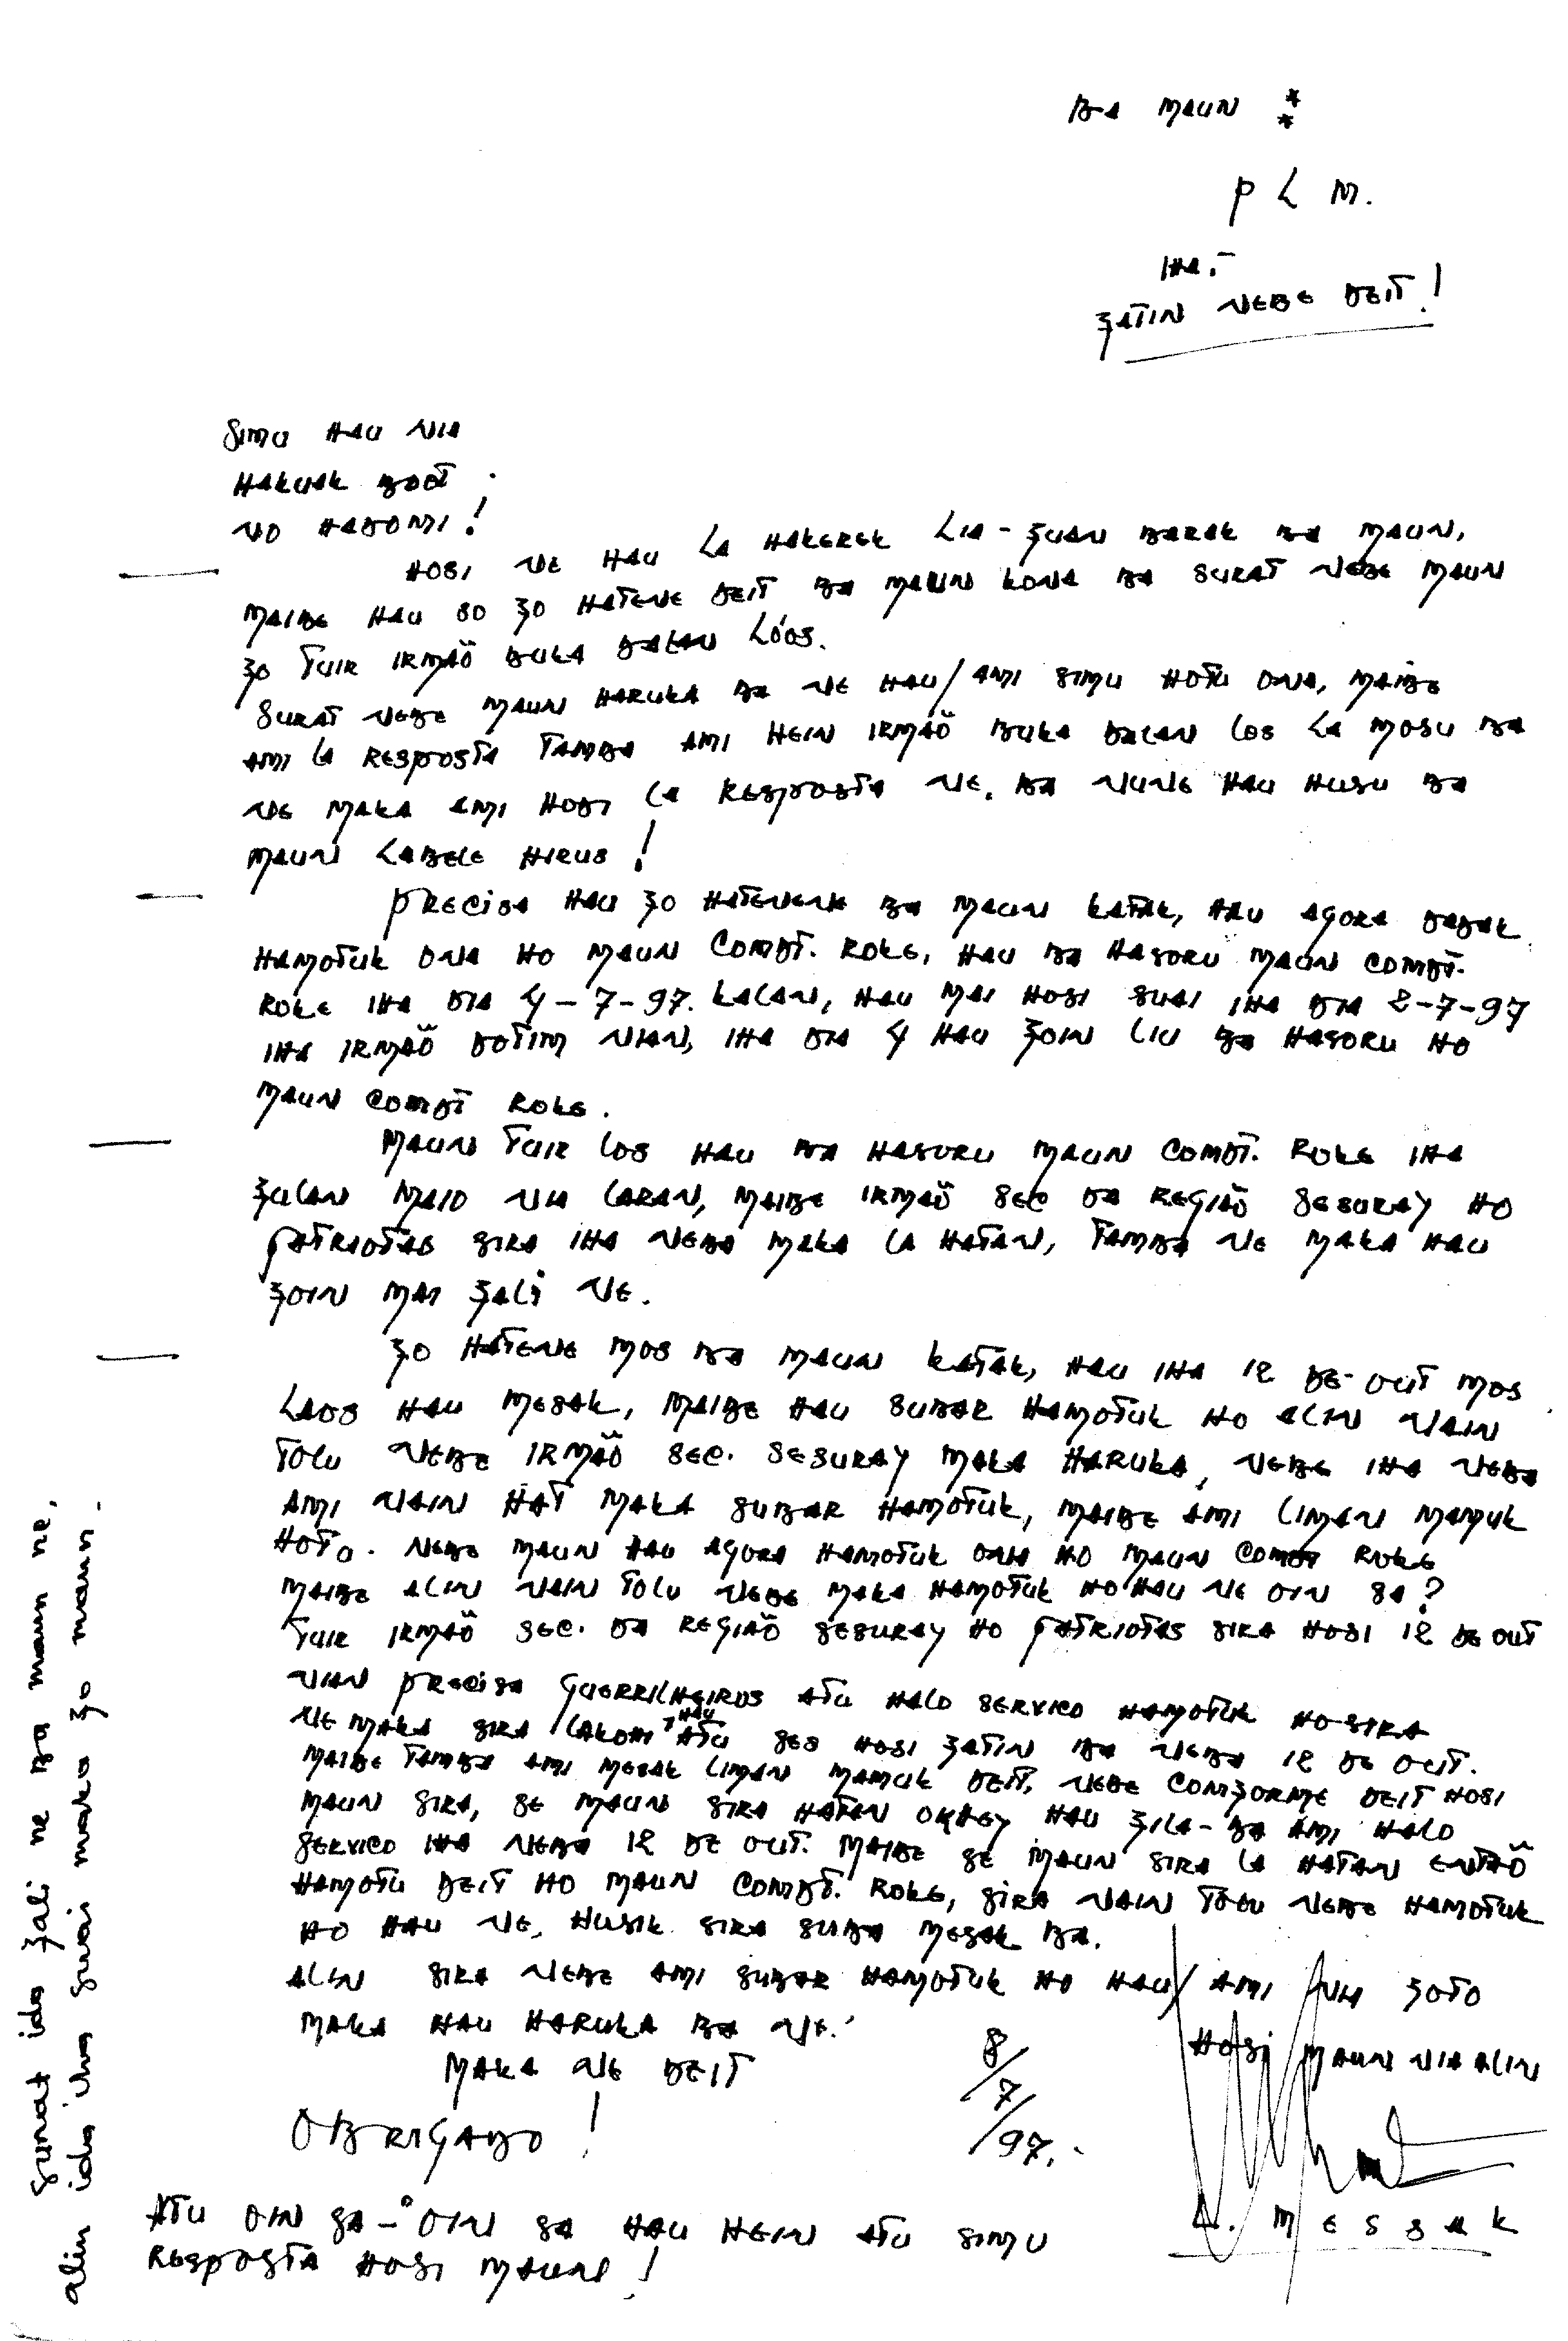 BA MAUN :
P L M.
IHA:
FATIN NEBE DEIT!
SIMU HAU NIA
HAKUAK BOOT
NO HADOMI!
HOSI NE HAU LA HAKEREK LIA-FUAN BARAK BA MAUN,
MAIBE HAU SO FO HATENE DEIT BA MAUN KONA BA SURAT NEBE MAUN
FO TUIR IRMÃO BUKA DALAN LÓOS.
SURAT NEBE MAUN HARUKA BA NE HAU/AMI SIMU HOTU ONA, MAIBE
AMI LA RESPOSTA TAMBA AMI HEIN IRMÃO BUKA DALAN LOS LA MOSU BA
NE MAKA AMI HOSI LA RESPOSTA NE. BA NUNE HAU HUSU BA
MAUN LABELE HIRUS!
PRECISA HAU FO HATENENE BA MAUN KATAK, HAU AGORA DADAK
HAMOTUK ONA HO MAUN COMDT. ROKE, HAU BA HASORU MAUN COMDT.
ROKE IHA DIA 4-7-97. KALAN, HAU MAI HOSI SUAI IHA DIA 2-7-97
IHA IRMÃO DOTIM NIAN, IHA DIA 4 HAU FOIN LIU BA HASORU HO
MAUN COMDT ROKE.
MAUN TUIR LOS HAU BA HASORU MAUN COMDT. ROKE IHA
FULAN MAIO NIA LARAN, MAIBE IRMÃO SEC DA REGIÃO SESURAY HO
PATRIOTAS SIRA IHA NEBA MAKA LA HATAN, TAMBA NE MAKA HAU
FOIN MAI FALI NE.
FO HATENE MOS BA MAUN KATAK, HAU IHA 12 DE OUT MOS
LAOS HAU MESAK, MAIBE HAU SUBAR HAMOTUK HO ALIN NAIN
TOLU NEBE IRMÃO SEC. SESURAY MAKA HARUKA, NEBE IHA NEBA
AMI NAIN HAT MAKA SUBAR HAMOTUK, MAIBE AMI LIMAN MAMUK
HOTO. NEBE MAUN HAU AGORA HAMOTUK ONA HO MAUN COMDT ROKE
MAIBE ALIN NAIN TOLU NEBE MAKA HAMOTUK HO HAU NE OIN SA?
TUIR IRMÃO SEC. DA REGIÃO SESURAY HO PATRIOTAS SIRA HOSI 12 DE OUT
NIAN PRECISA GUERRILHEIROS ATU HALO SERVICO HAMOTUK HO SIRA
NE MAKA SIRA LAKOHI HAU ATU SES HOSI FATIN BA NEBA 12 DE OUT.
MAIBE TAMBA AMI MESAK LIMAN MAMUK DEIT, NEBE COMFORME DEIT HOSI
MAUN SIRA, SE MAUN SIRA HATAN OKAEY HAU FILA-BA AMI HALO
SERVICO IHA NEBA 12 DE OUT. MAIBE SE MAUN SIRA LA HATAN ENTÃO
HAMOTU DEIT HO MAUN COMDT. ROKE, SIRA NAIN TOLU NEBE HAMOTUK
HO HAU NE, HUSIK SIRA SUBA MESAK BA.
ALIN SIRA NEBE AMI SUBAR HAMOTUK HO HAU/AMI NIA FOTO
MAKA HAU HARUKA BA NE.
MAKA NE DEIT
OBRIGADO!
8/7/97.
HOSI MAUN NIA ALIN
A. MESSAK
ATU OIN SA-OIN SA HAU HEIN ATU SIMU
RESPOSTA HOSI MAUN!
surat ida fali ne ba maun ne,
alin ida iha suai maka fo maun.